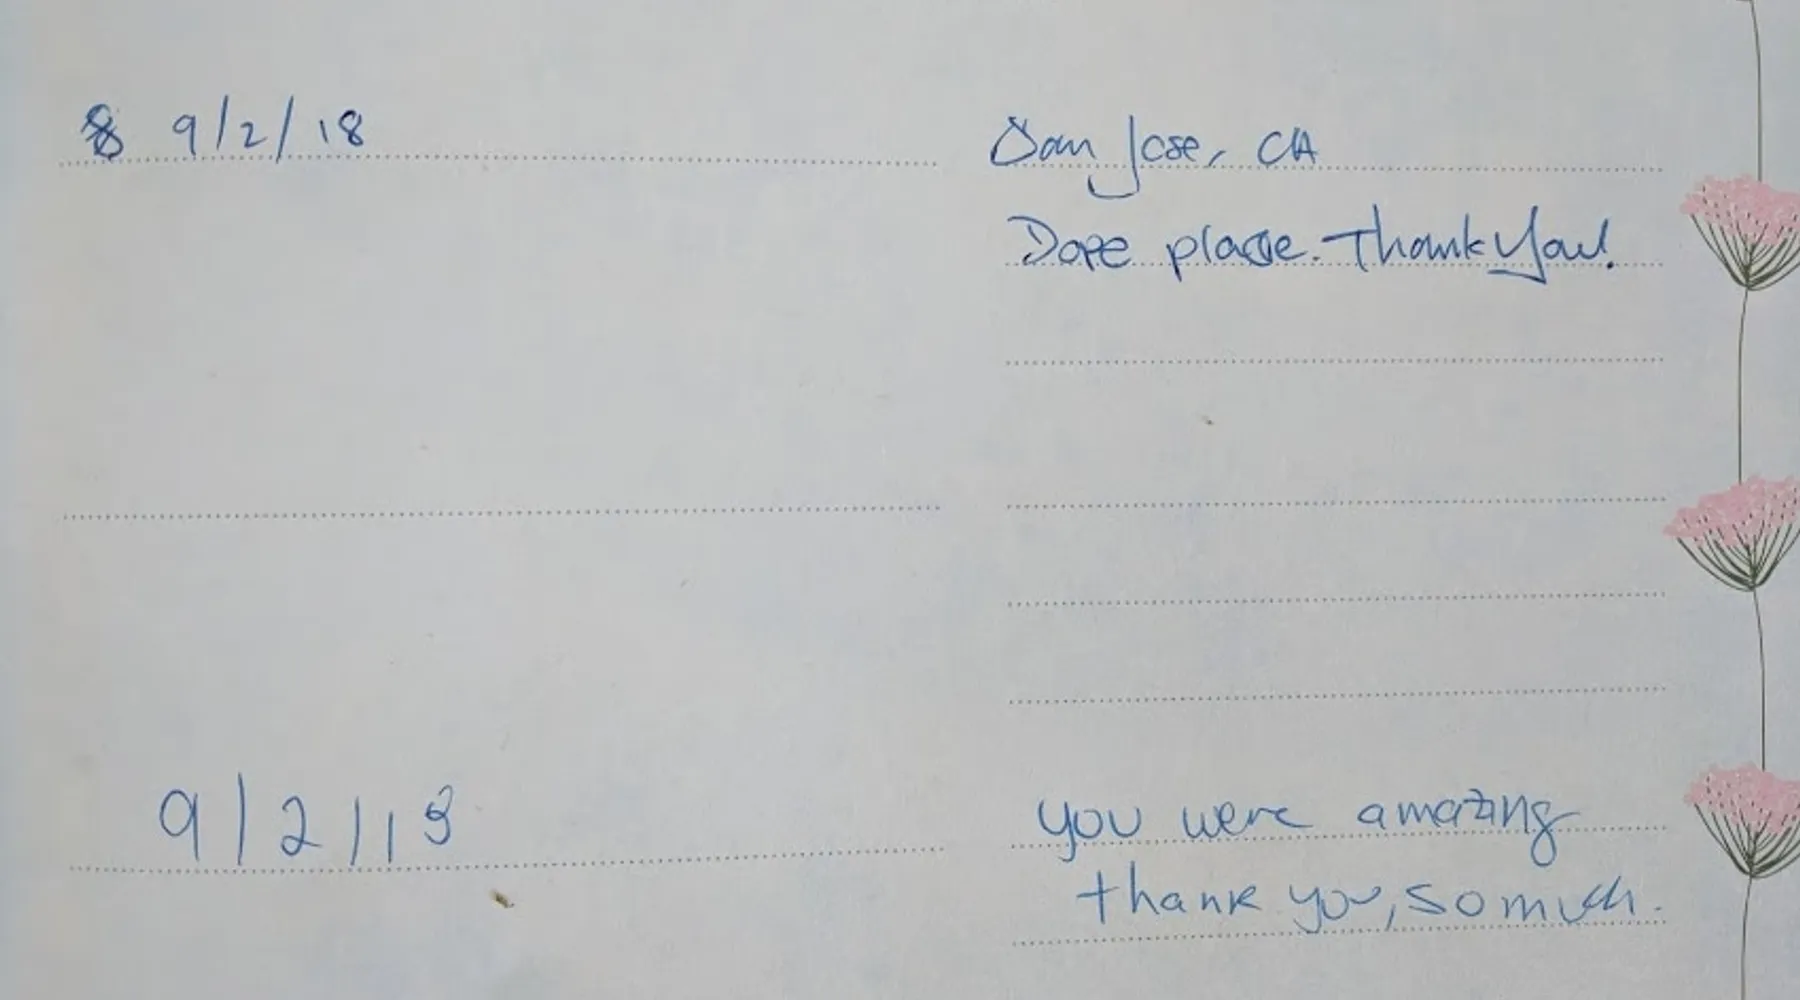 9/2/18
San Jose, CA
Dope place. Thank You!
9/2/18
you were amazing
thank you, so much.